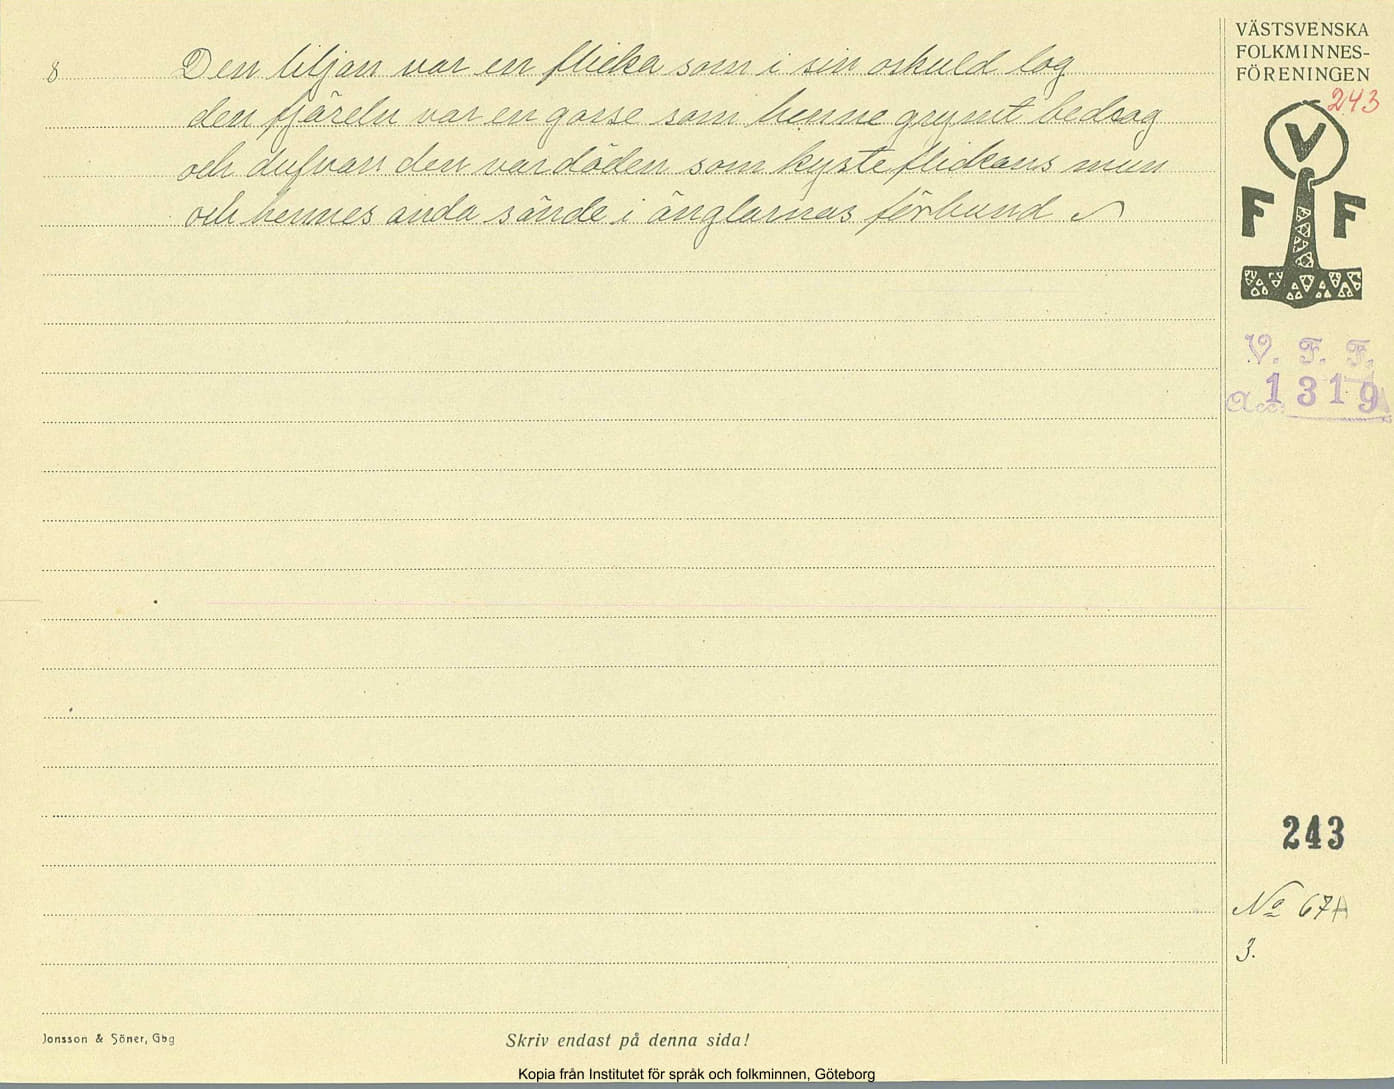 8 Den liljan var en flicka som i sin oskuld log
den fjäreln var en gosse som henne grymt bedrog
och dufvan den var döden som kyste flickans mun
och hennes anda sände i änglarnas förbund
VÄSTSVENSKA
FOLKMINNES-
FÖRENINGEN
243
V
F F
V. F. F.
Acc. 1319
243
No 67A
3.
Jonsson & Söner, Gbg
Skriv endast på denna sida!
Kopia från Institutet för språk och folkminnen, Göteborg